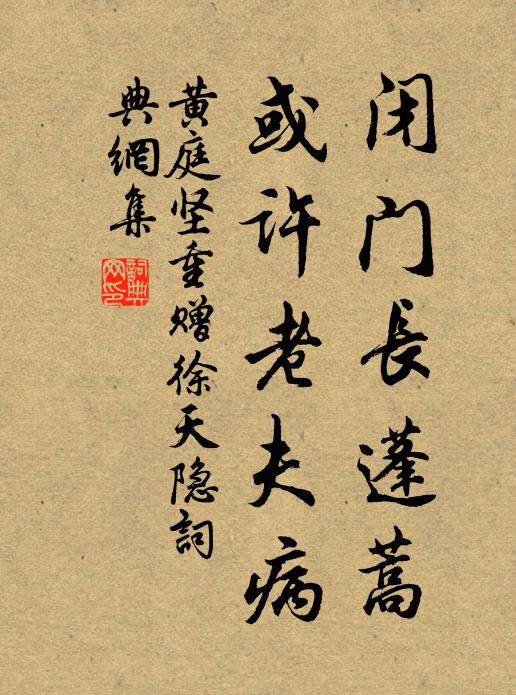 闭门长蓬蒿
或许老夫病
黄庭坚重赠徐天隐詞
典網集
詞典网印